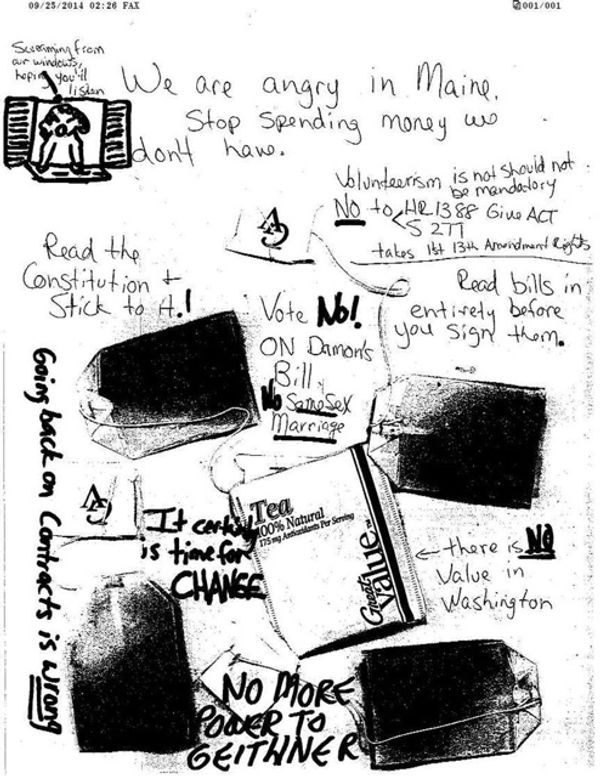 09/25/2014 02:26 FAX
001/001
Screaming from
our windows,
hoping you'll
listen
We are angry in Maine.
Stop Spending money we
don't have.
Volunteerism is not should not
be mandatory
NO to HR 1388 Give ACT
S 277
takes 1st 13th Amendment Rights
Read the
Constitution +
Stick to it.!
Vote No!
ON Damon's
Bill,
No Same Sex
Marriage
Read bills in
entirety before
you sign them.
Going back on Contracts is wrong
It certainly
is time for
CHANGE
Tea
100% Natural
175 mg Antioxidants Per Serving
Great Value™
← there is NO
Value in
Washington
NO MORE
POWER TO
GEITHNER